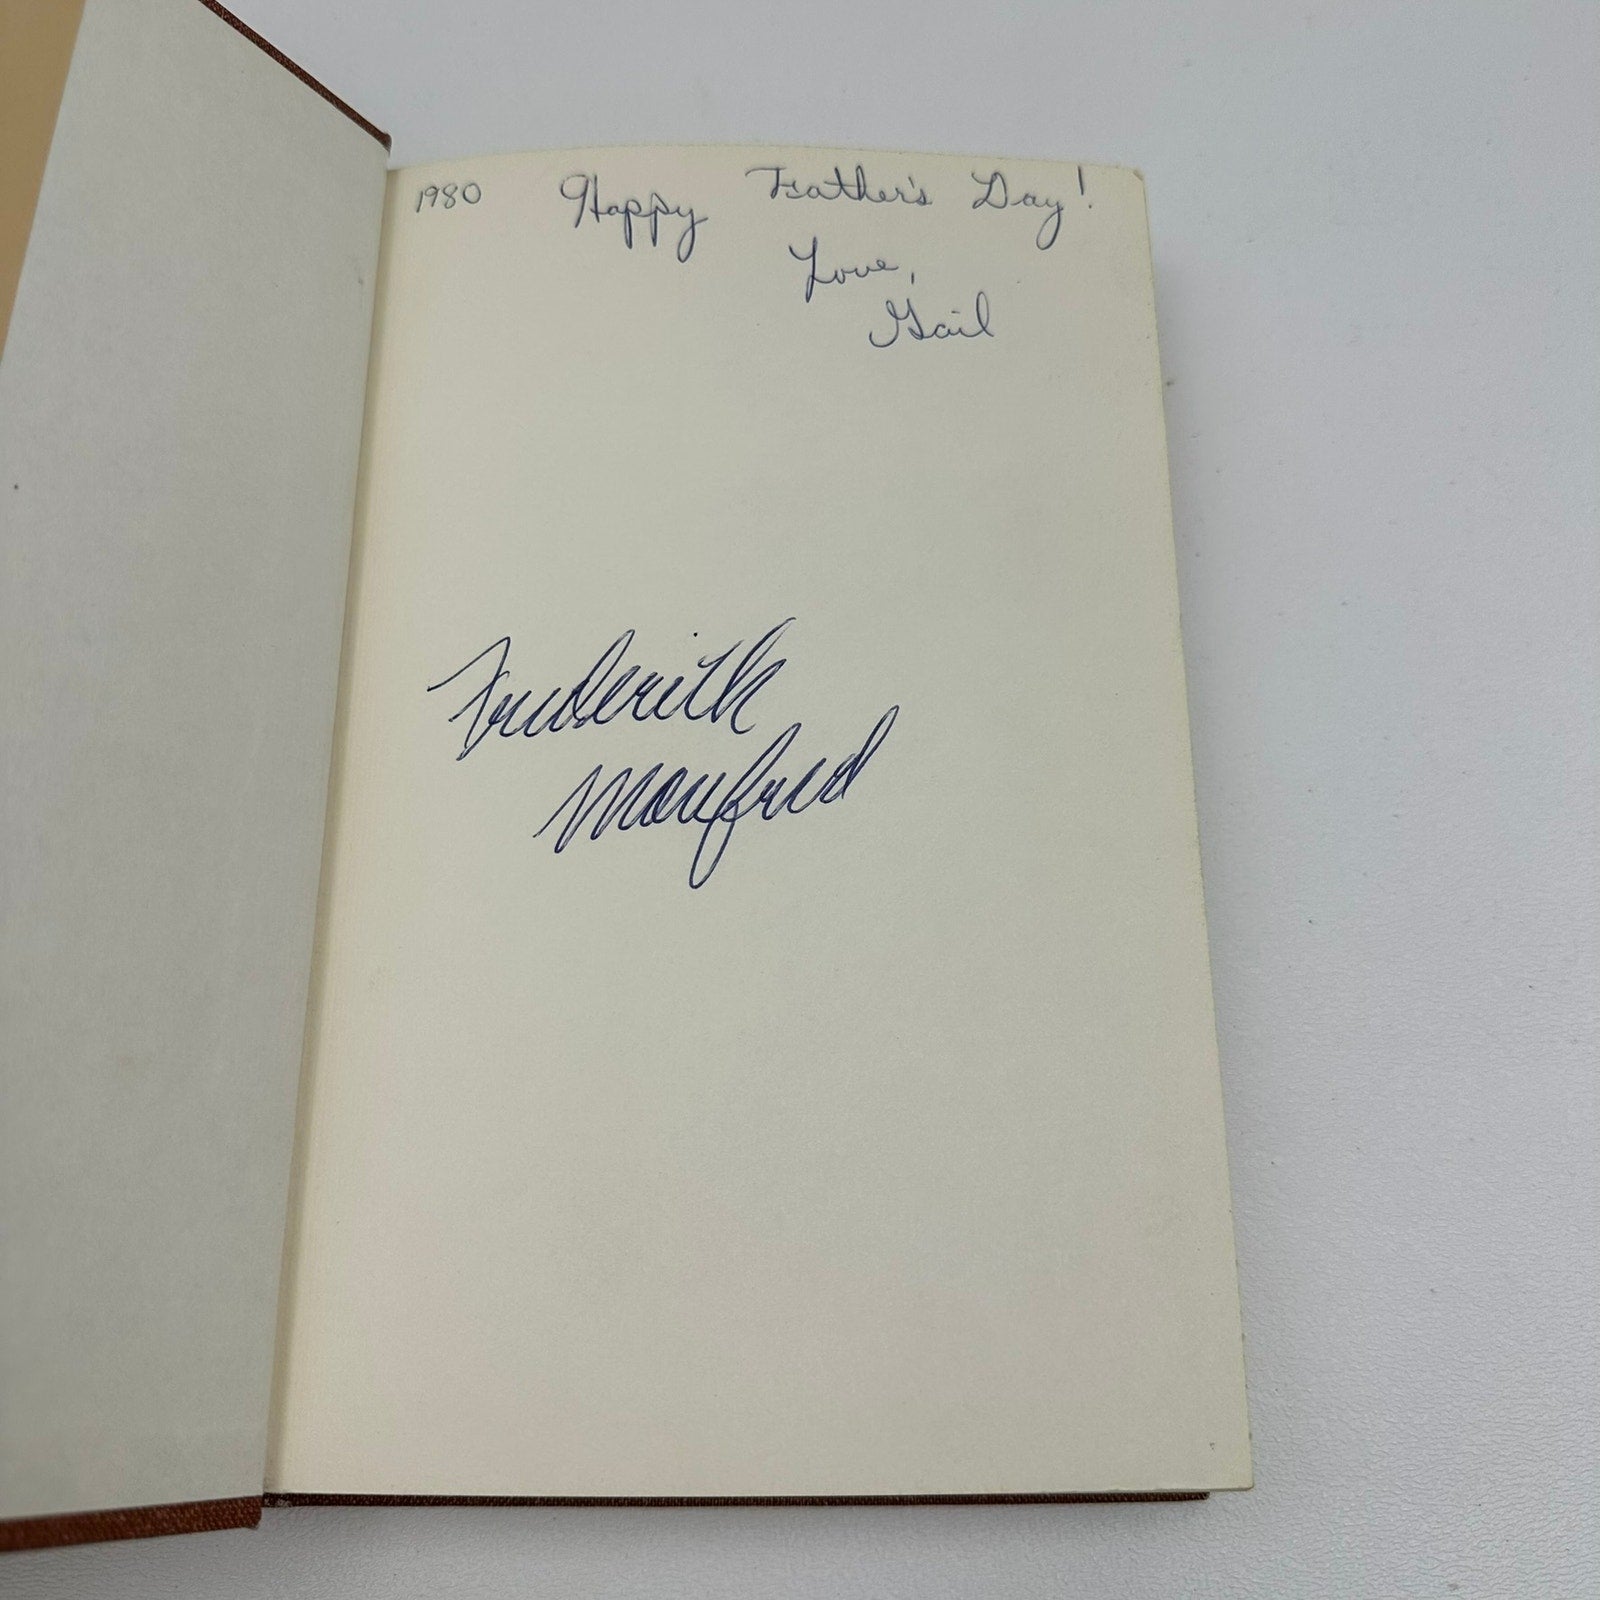 1980 Happy Father's Day!
Love,
Gail
Frederick
Manfred